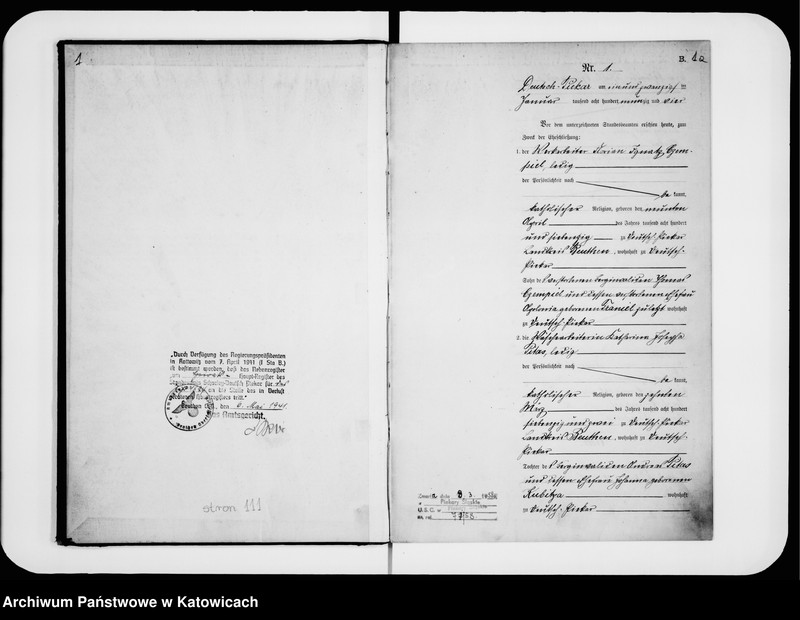 1
„Durch Verfügung des Regierungspräsidenten
in Kattowitz vom 7. April 1941 (I Sta B.)
ist bestimmt worden, daß das Nebenregister
Haupt-Register des
Deutsch Piekar
an die Stelle des in Verlust
tritt."
Beuthen O/S., den 9. Mai 1941
Das Amtsgericht.
stron 111
B. 1a
Nr. 1.
Deutsch-Piekar am neunundzwanzigsten
Januar tausend acht hundert neunzig und vier
Vor dem unterzeichneten Standesbeamten erschien heute, zum
Zweck der Eheschließung:
1. der Werkarbeiter Florian Ignatz Gem-
piel, ledig
der Persönlichkeit nach
be kannt,
katholischer Religion, geboren den neunten
April des Jahres tausend acht hundert
und siebenzig zu Deutsch-Piekar
Landkreis Beuthen, wohnhaft zu Deutsch-
Piekar
Sohn des verstorbenen Berginvaliden Thomas
Gempiel und dessen verstorbenen Ehefrau
Apolonia geborenen zuletzt wohnhaft
zu Deutsch-Piekar
2. die Wäschearbeiterin Katharina Josepha
Pitas, ledig
der Persönlichkeit nach
be kannt,
katholischer Religion, geboren den zehnten
März des Jahres tausend acht hundert
siebenzig und zwei zu Deutsch-Piekar
Landkreis Beuthen, wohnhaft zu Deutsch-
Piekar
Tochter des Berginvaliden Andreas Pitas
und dessen Ehefrau Johanna geborenen
Kubitza wohnhaft
zu Deutsch-Piekar
Piekary Śląskie
U.S.C. w
Archiwum Państwowe w Katowicach